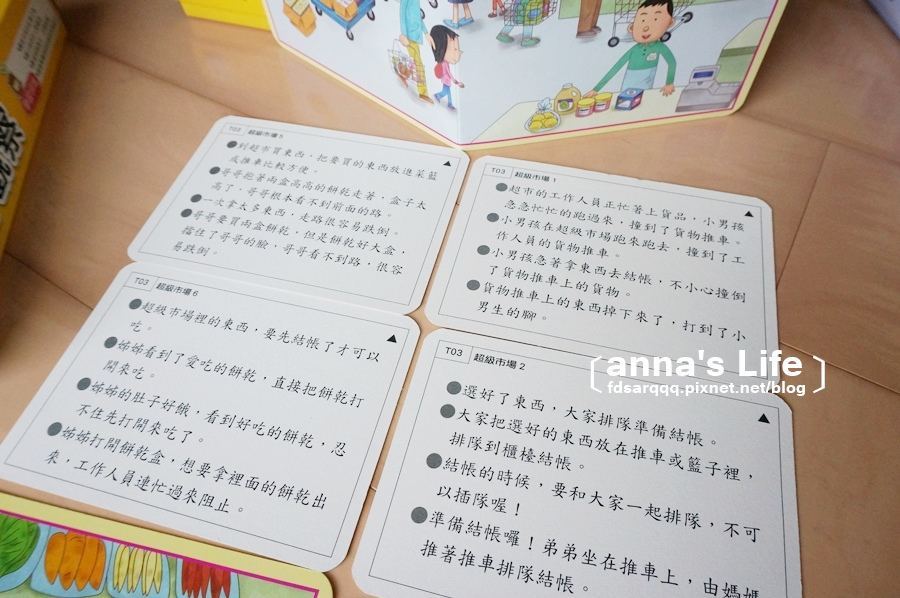 T03 超級市場 5
●到超市買東西，把要買的東西放進菜籃
或推車比較方便。
●哥哥抱著兩盒高高的餅乾走著，盒子太
高了，哥哥根本看不到前面的路。
●一次拿太多東西，走路很容易跌倒。
●哥哥要買兩盒餅乾，但是餅乾好大盒，
擋住了哥哥的臉，哥哥看不到路，很容
易跌倒。
T03 超級市場 1
●超市的工作人員正忙著上貨品，小男孩
急急忙忙的跑過來，撞到了貨物推車。
●小男孩在超級市場跑來跑去，撞到了工
作人員的貨物推車。
●小男孩急著拿東西去結帳，不小心撞倒
了貨物推車上的貨物。
●貨物推車上的東西掉下來了，打到了小
男生的腳。
T03 超級市場 6
●超級市場裡的東西，要先結帳了才可以
吃。
●姊姊看到了愛吃的餅乾，直接把餅乾打
開來吃。
●姊姊的肚子好餓，看到好吃的餅乾，忍
不住先打開來吃了。
●姊姊打開餅乾盒，想要拿裡面的餅乾出
來，工作人員連忙過來阻止。
T03 超級市場 2
●選好了東西，大家排隊準備結帳。
●大家把選好的東西放在推車或籃子裡，
排隊到櫃檯結帳。
●結帳的時候，要和大家一起排隊，不可
以插隊喔！
●準備結帳囉！弟弟坐在推車上，由媽媽
推著推車排隊結帳。
anna's Life
fdsarqqq.pixnet.net/blog